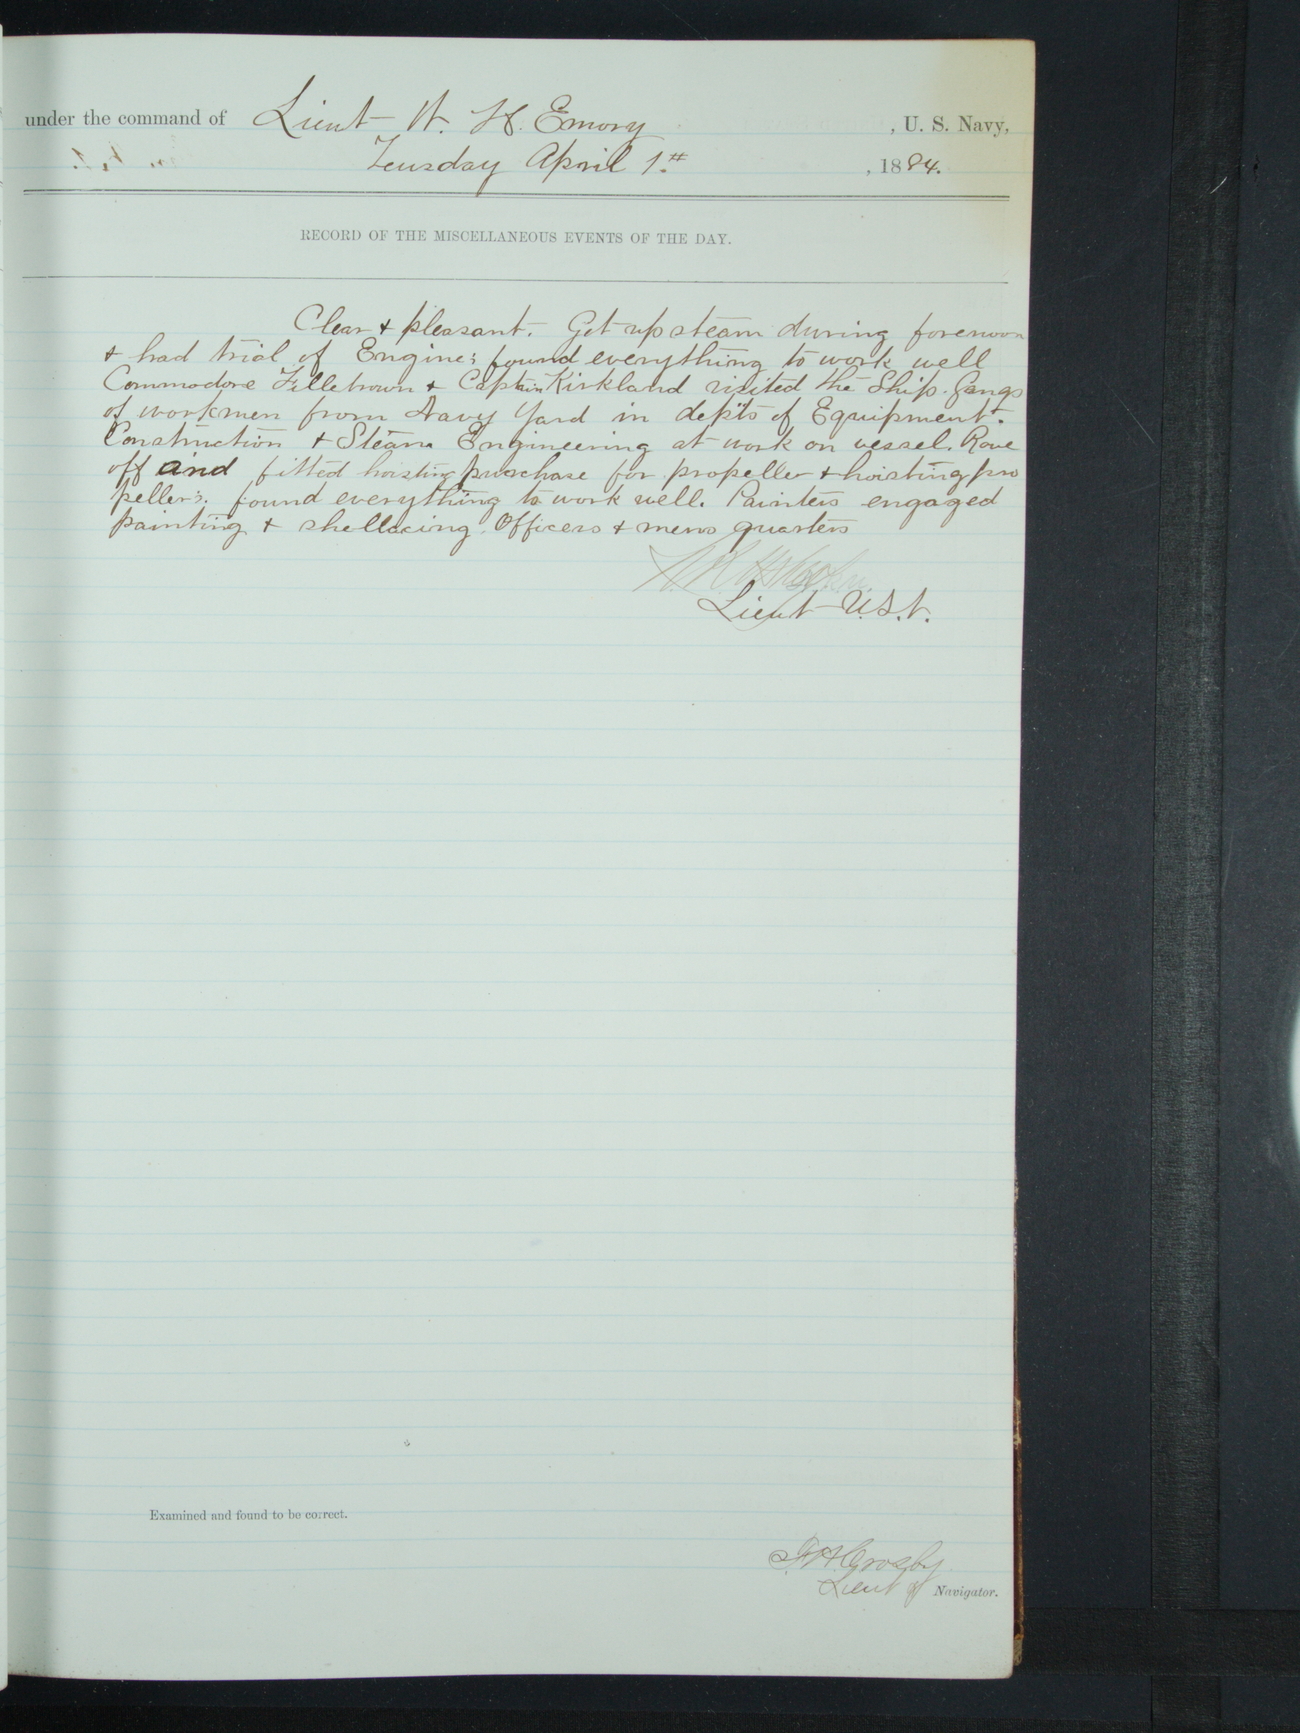 under the command of Lieut W. H. Emory, U. S. Navy,
Teusday April 1st, 1884.
RECORD OF THE MISCELLANEOUS EVENTS OF THE DAY.
Clear & pleasant. Got up steam during forenoon
& had trial of Engines; found everything to work well
Commodore Fillebrown & Captain Kirkland visited the Ship. Gangs
of workmen from Navy Yard in depts of Equipment.
Construction & Steam Engineering at work on vessel. Rove
off and fitted hoisting purchase for propeller & hoisting pro
peller. found everything to work well. Painters engaged
painting & shellacing Officers & mens quarters
Lieut U.S.N.
Examined and found to be correct.
Crosby
Lieut & Navigator.